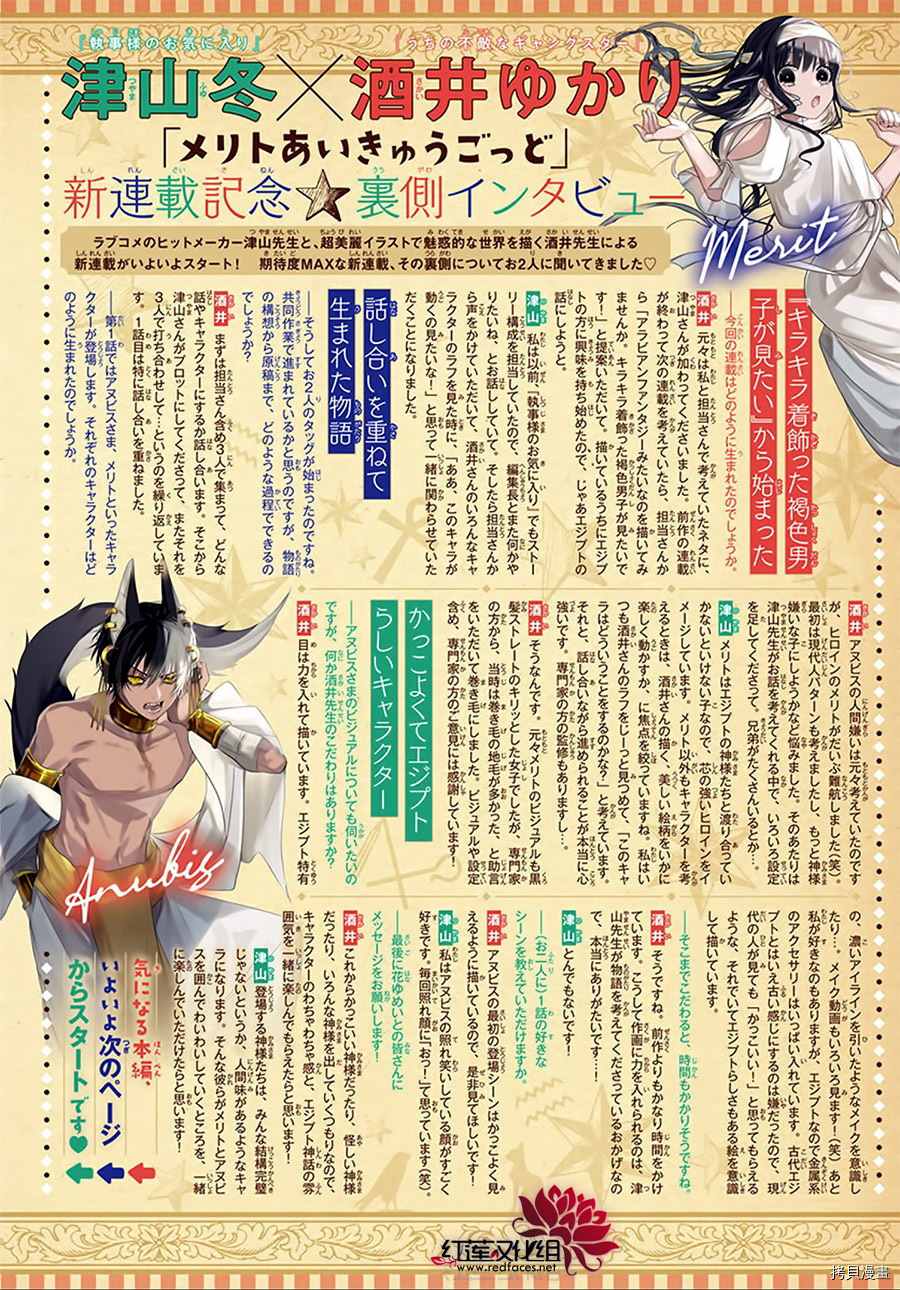 『執事様のお気に入り』
『うちの不敵なギャングスター』
津山冬×酒井ゆかり
「メリトあいきゅうごっど」
新連載記念☆裏側インタビュー
ラブコメのヒットメーカー津山先生と、超美麗イラストで魅惑的な世界を描く酒井先生による
新連載がいよいよスタート! 期待度MAXな新連載、その裏側についてお2人に聞いてきました♡
Merit
『キラキラ着飾った褐色男
子が見たい』から始まった
――今回の連載はどのように生まれたのでしょうか。
酒井 元々は私と担当さんで考えていたネタに、
津山さんが加わってくださいました。前作の連載
が終わって次の連載を考えていたら、担当さんか
ら「アラビアンファンタジーみたいなのを描いてみ
ませんか。キラキラ着飾った褐色男子が見たいで
す!」と提案いただいて。描いているうちにエジプ
トの方に興味を持ち始めたので、じゃあエジプトの
話にしようと。
津山 私は以前、『執事様のお気に入り』でもストー
リー構成を担当していたので、編集長とまた何かや
りたいね、とお話ししていて。そしたら担当さんか
ら声をかけていただいて、酒井さんのいろんなキャ
ラクターのラフを見た時に、「ああ、このキャラが
動くの見たいな!」と思って一緒に関わらせていた
だくことになりました。
話し合いを重ねて
生まれた物語
――そうしてお2人のタッグが始まったのですね。
共同作業で進まれているかと思うのですが、物語
の構想から原稿まで、どのような過程でできるの
でしょうか?
酒井 まずは担当さん含め3人で集まって、どんな
話やキャラクターにするか話し合います。そこから
津山さんがプロットにしてくださって、またそれを
3人で打ち合わせして…というのを繰り返していま
す。1話目は特に話し合いを重ねました。
――第1話ではアヌビスさま、メリトといったキャラ
クターが登場します。それぞれのキャラクターはど
のように生まれたのでしょうか。
酒井 アヌビスの人間嫌いは元々考えていたのです
が、ヒロインのメリトがだいぶ難航しました(笑)。
最初は現代人パターンも考えましたし、もっと神様
嫌いな子にしようかなど悩みました。そのあたりは
津山先生がお話を考えてくれる中で、いろいろ設定
を足してくださって。兄弟がたくさんいるとか…。
津山 メリトはエジプトの神様たちと渡り合ってい
かないといけない子なので、芯の強いヒロインをイ
メージしています。メリト以外もキャラクターを考
えるときは、酒井さんの描く、美しい絵柄をいかに
楽しく動かすか、に焦点を絞っていますね。私はい
つも酒井さんのラフをじーっと見つめて、「このキャ
ラはどういうことをするのかな?」と考えています。
それと、話し合いながら進められることが本当に心
強いです。専門家の方の監修もありますし…。
酒井 そうなんです。元々メリトのビジュアルも黒
髪ストレートのキリッとした女子でしたが、専門家
の方から、当時は巻き毛の地毛が多かった、と助言
をいただいて巻き毛にしました。ビジュアルや設定
含め、専門家の方のご意見には感謝しています!
かっこよくてエジプト
らしいキャラクター
――アヌビスさまのビジュアルについても伺いたいの
ですが、何か酒井先生のこだわりはありますか?
酒井 目は力を入れて描いています。エジプト特有
の、濃いアイラインを引いたようなメイクを意識し
たり…。メイク動画もいろいろ見ます!(笑)あと
私が好きなのもありますが、エジプトなので金属系
のアクセサリーはいっぱい入れています。古代エジ
プトとはいえ古い感じにするのは嫌だったので、現
代の人が見ても「かっこいい!」と思ってもらえる
ような、それでいてエジプトらしさもある絵を意識
して描いています。
――そこまでこだわると、時間もかかりそうですね。
酒井 そうですね。前作よりもかなり時間をかけ
ています。こうして作画に力を入れられるのは、津
山先生が物語を考えてくださっているおかげなの
で、本当にありがたいです。
津山 とんでもないです!
――(お二人に)1話の好きな
シーンを教えていただけますか。
酒井 アヌビスの最初の登場シーンはかっこよく見
えるように描いているので、是非見てほしいです!
津山 私はアヌビスの照れ笑いしている顔がすごく
好きです。毎回照れ顔に「おっ!」て思っています(笑)。
――最後に花ゆめいとの皆さんに
メッセージをお願いします!
酒井 これからかっこいい神様だったり、怪しい神様
だったり、いろんな神様を出していくつもりなので、
キャラクターのわちゃわちゃ感と、エジプト神話の雰
囲気を一緒に楽しんでもらえたらと思います!
津山 登場する神様たちは、みんな結構完璧
じゃないというか、人間味があるようなキャ
ラになります。そんな彼らがメリトとアヌビ
スを囲んでわいわいしていくところを、一緒
に楽しんでいただけたらと思います!
Anubis
気になる本編、
いよいよ次のページ
からスタートです♥
红莲汉化组
www.redfaces.net
拷貝漫畫